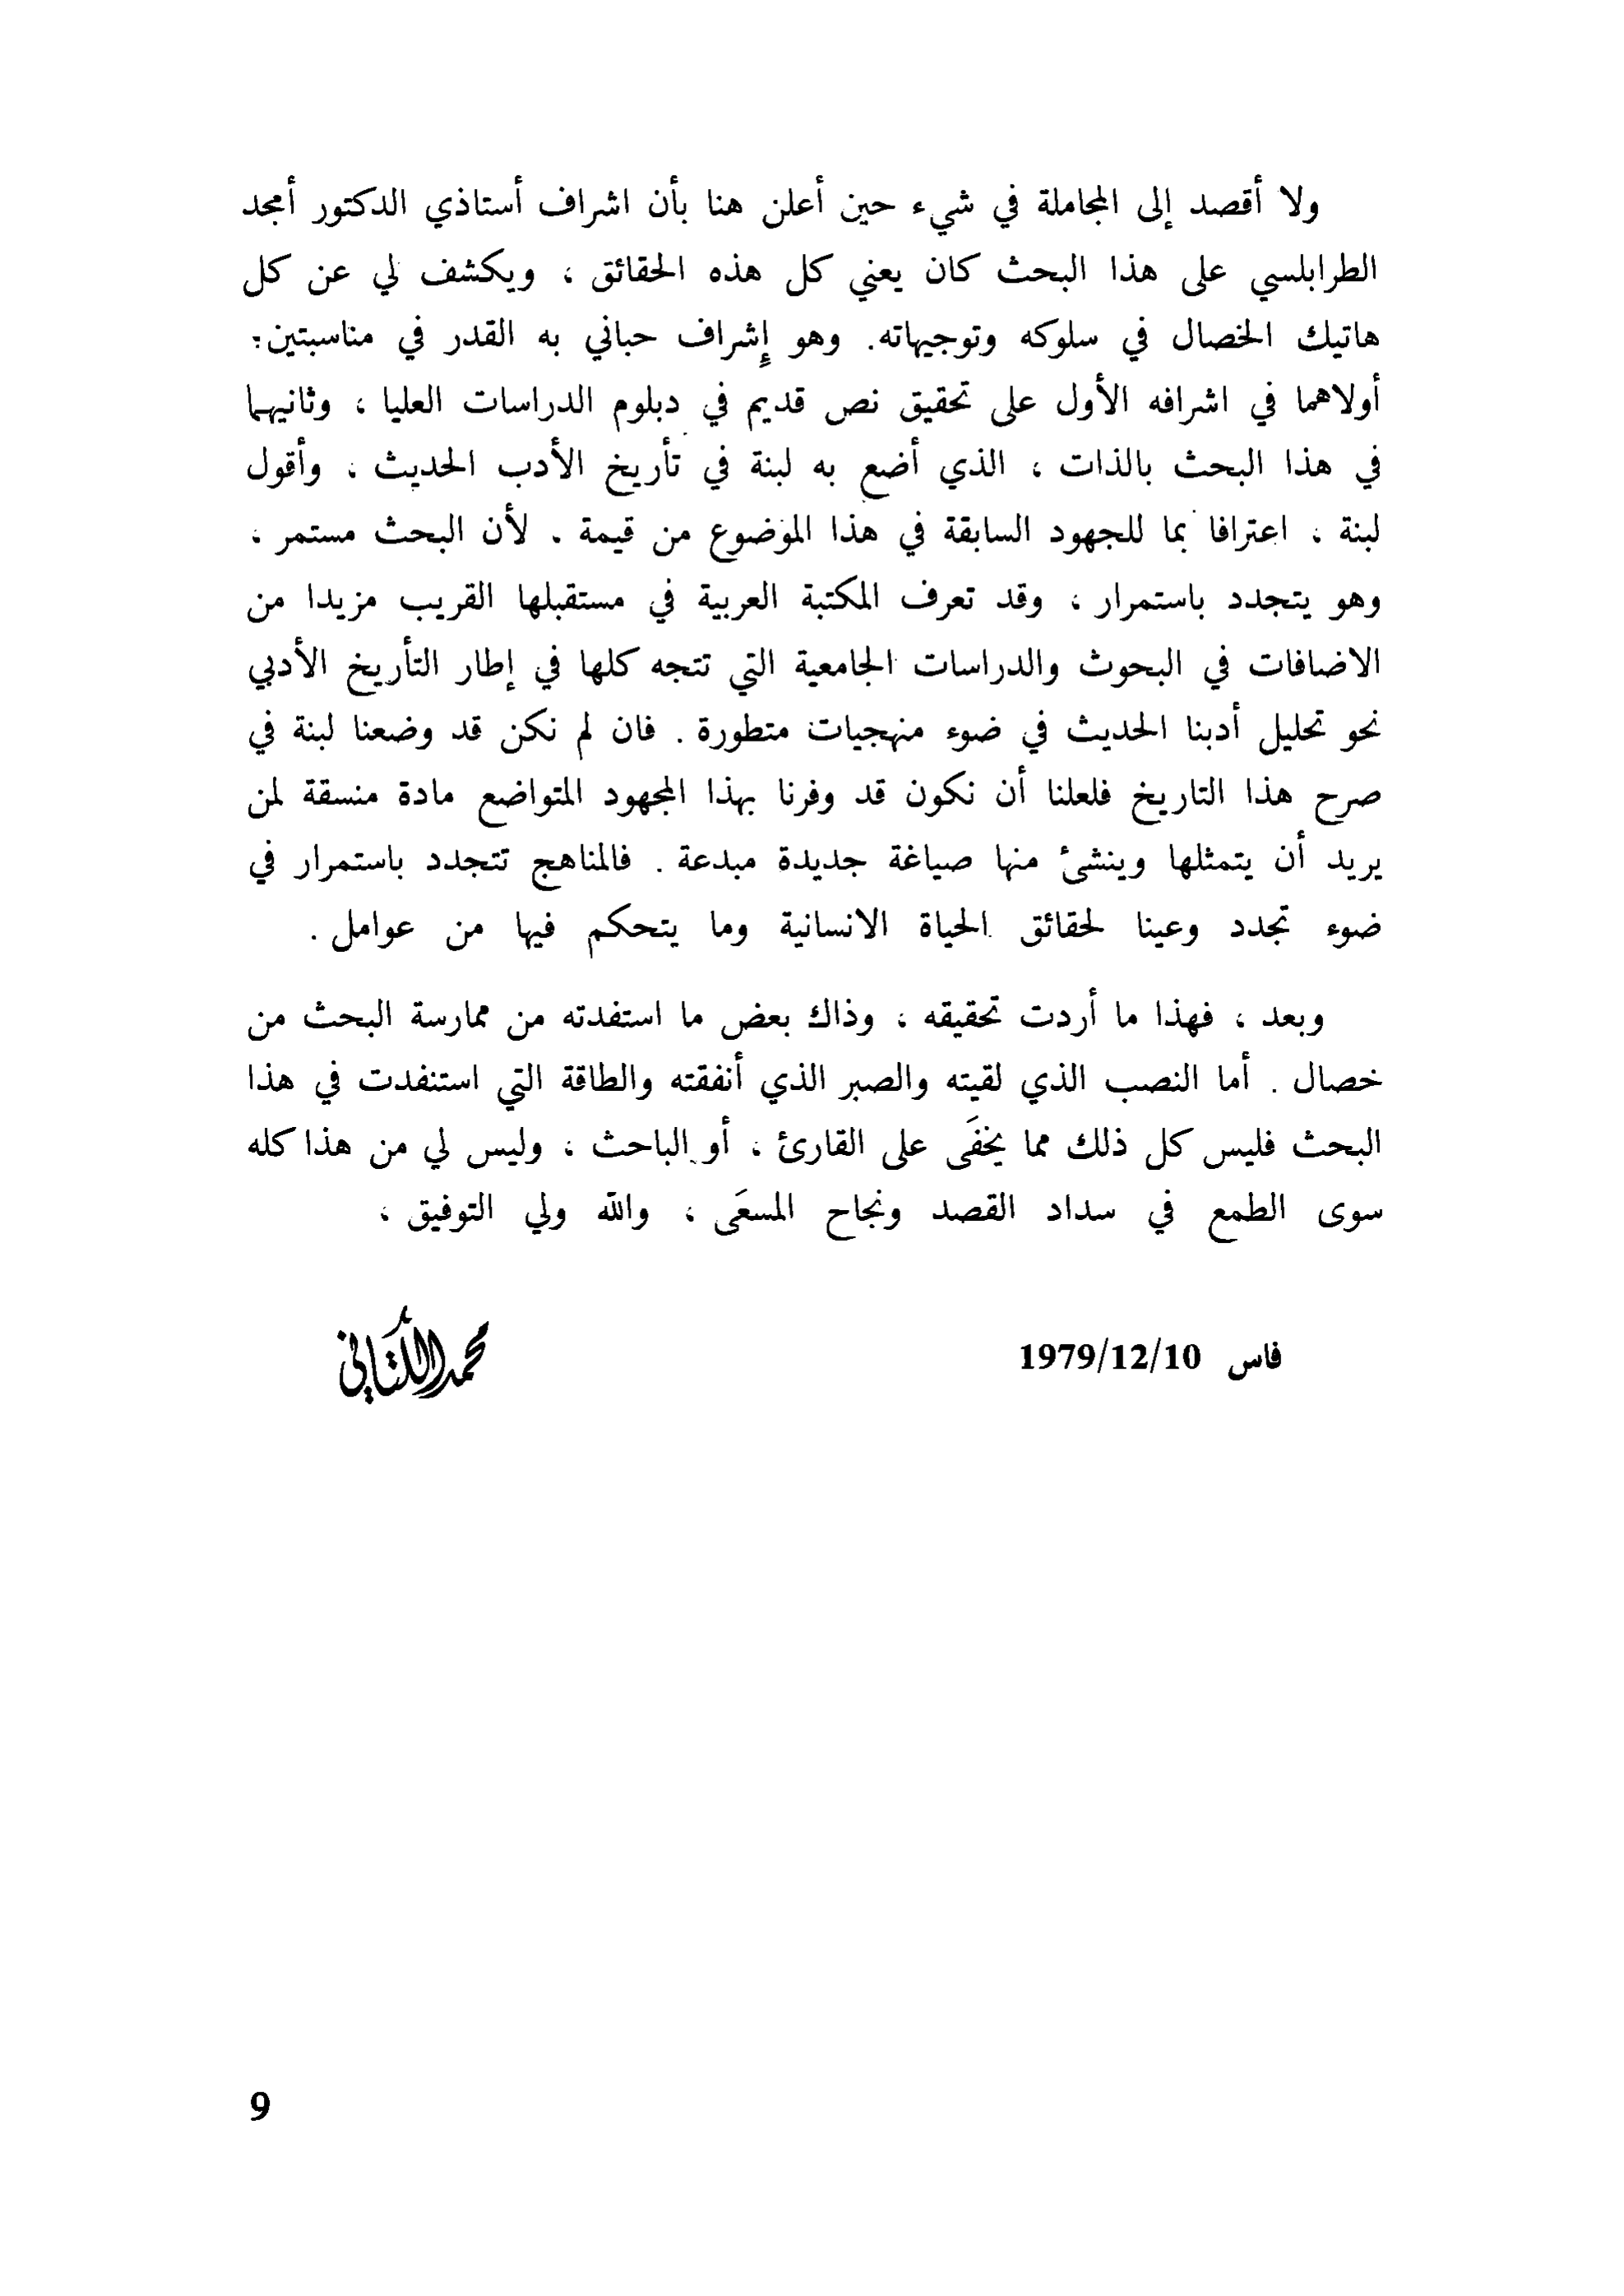 ولا أقصد إلى المجاملة في شيء حين أعلن هنا بأن اشراف أستاذي الدكتور أمجد
الطرابلسي على هذا البحث كان يعني كل هذه الحقائق ، ويكشف لي عن كل
هاتيك الخصال في سلوكه وتوجيهاته. وهو إِشراف حباني به القدر في مناسبتين:
أولاهما في اشرافه الأول على تحقيق نص قديم في دبلوم الدراسات العليا ، وثانيهما
في هذا البحث بالذات ، الذي أضع به لبنة في تأريخ الأدب الحديث ، وأقول
لبنة ، اعترافا بما للجهود السابقة في هذا الموضوع من قيمة . لأن البحث مستمر ،
وهو يتجدد باستمرار ، وقد تعرف المكتبة العربية في مستقبلها القريب مزيدا من
الاضافات في البحوث والدراسات الجامعية التي تتجه كلها في إطار التأريخ الأدبي
نحو تحليل أدبنا الحديث في ضوء منهجيات متطورة . فان لم نكن قد وضعنا لبنة في
صرح هذا التاريخ فلعلنا أن نكون قد وفرنا بهذا المجهود المتواضع مادة منسقة لمن
يريد أن يتمثلها وينشئ منها صياغة جديدة مبدعة . فالمناهج تتجدد باستمرار في
ضوء تجدد وعينا لحقائق الحياة الانسانية وما يتحكم فيها من عوامل .
وبعد ، فهذا ما أردت تحقيقه ، وذاك بعض ما استفدته من ممارسة البحث من
خصال . أما النصب الذي لقيته والصبر الذي أنفقته والطاقة التي استنفدت في هذا
البحث فليس كل ذلك مما يخفَى على القارئ ، أو الباحث ، وليس لي من هذا كله
سوى الطمع في سداد القصد ونجاح المسعَى ، والله ولي التوفيق ،
فاس 1979/12/10
محمد الكتاني
9